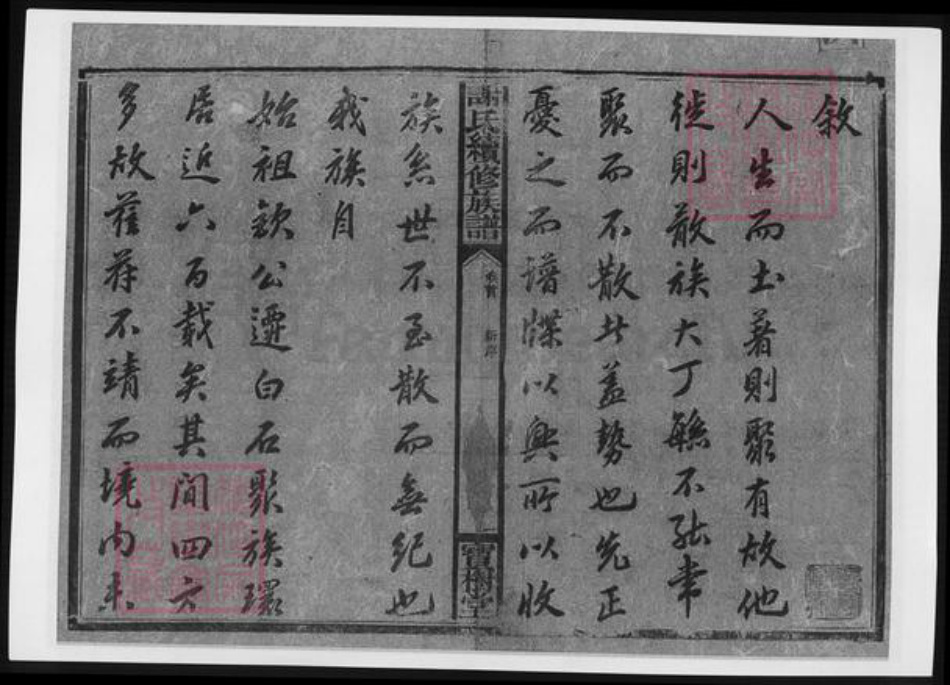 敘
人生而土著則聚有故他
徙則散族大丁繇不能常
聚而不散此蓋勢也先正
憂之而譜牒以興所以收
謝氏續修族譜
卷首
新序
寶樹堂
族系世不至散而無紀也
我族自
始祖欽公遷白石聚族環
居近六百載矣其間四方
多故萑苻不靖而境內未